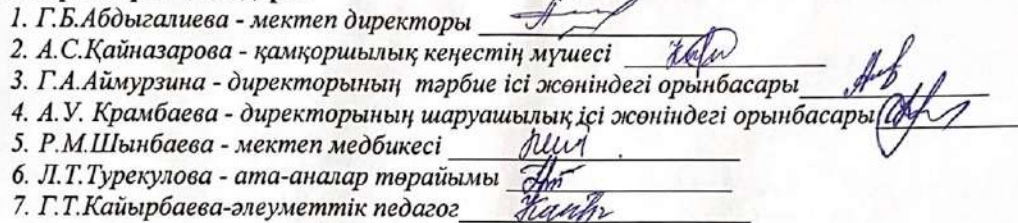 1. Г.Б.Абдыгалиева - мектеп директоры
2. А.С.Қайназарова - қамқоршылық кеңестің мүшесі
3. Г.А.Аймурзина - директорының тәрбие ісі жөніндегі орынбасары
4. А.У. Крамбаева - директорының шаруашылық ісі жөніндегі орынбасары
5. Р.М.Шынбаева - мектеп медбикесі
6. Л.Т.Турекулова - ата-аналар төрайымы
7. Г.Т.Кайырбаева-әлеуметтік педагог